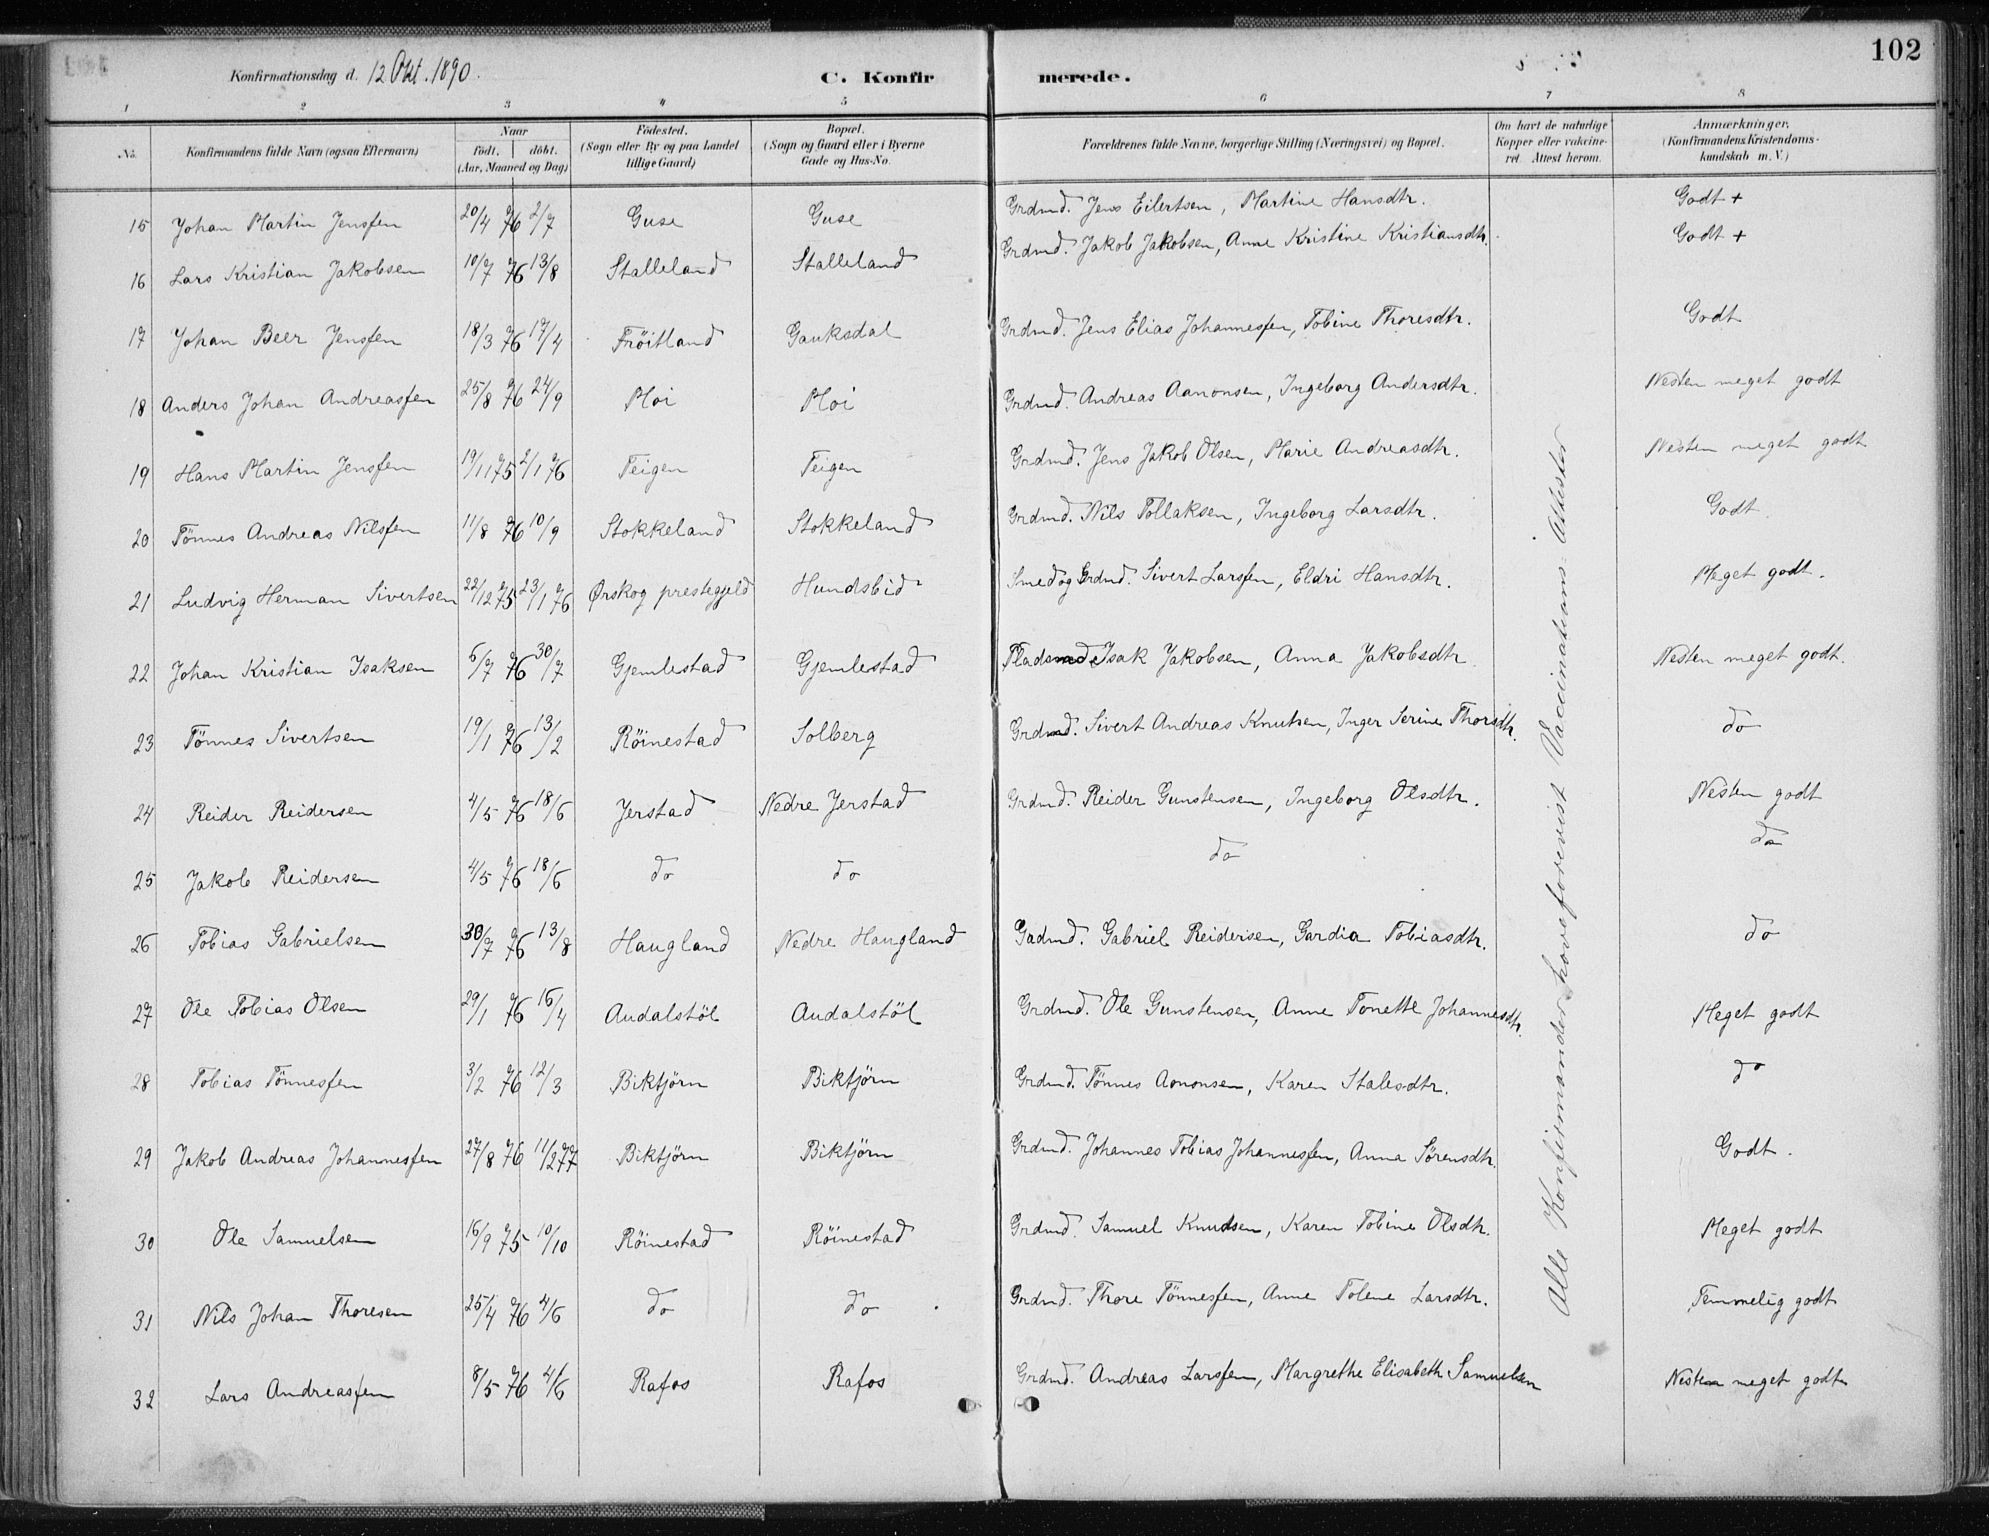 102
Konfirmationsdag d. 12 Okt. 1890.
C. Konfir merede.
1 2 3 4 5 6 7 8
No. Konfirmandens fulde Navn (ogsaa Efternavn) Naar født, døbt. (Aar, Maaned og Dag) Fødested. (Sogn eller By og paa Landet tillige Gaard) Bopæl. (Sogn og Gaard eller i Byerne Gade og Hus-No. Forældrenes fulde Navne, borgerlige Stilling (Næringsvei) og Bopæl. Om havt de naturlige Kopper eller vakcineret. Attest herom. Anmærkninger. (Konfirmandens Kristendomskundskab m. V.)
15 Johan Martin Jensfen 20/4 76 2/7 Guse Guse Grdmd. Jens Eilertsen, Martine Hansdtr. Godt +
16 Lars Kristian Jakobsen 10/7 76 13/8 Stalleland Stalleland Grdmd. Jakob Jakobsen, Anne Kristine Kristiansdtr. Godt +
17 Johan Beer Jensfen 18/3 76 17/4 Fröitland Gauksdal Grdmd. Jens Elias Johannesfen, Tobine Thoresdtr. Godt
18 Anders Johan Andreasfen 25/8 76 24/9 Moi Moi Grdmd. Andreas Aanonsen, Ingeborg Andersdtr. Nesten meget godt
19 Hans Martin Jensfen 19/11 75 2/1 76 Teigen Teigen Grdmd. Jens Jakob Olsen, Marie Andreasdtr. Nesten meget godt
20 Tönnes Andreas Nilsfen 11/8 76 10/9 Stokkeland Stokkeland Grdmd. Nils Tollaksen, Ingeborg Larsdtr. Godt
21 Ludvig Herman Sivertsen 22/12 75 23/1 76 Ørskog prestegjeld Hundsbid Smed og Grdmd. Sivert Larsfen, Eldri Hansdtr. Meget godt.
22 Johan Kristian Isaksen 6/7 76 30/7 Gjemlestad Gjemlestad Pladsmd. Isak Jakobsen, Anna Jakobsdtr. Nesten meget godt.
23 Tönnes Sivertsen 19/1 76 13/2 Röinestad Solberg Grdmd. Sivert Andreas Knutsen, Inger Serine Thorsdtr. do
24 Reider Reidersen 4/5 76 18/6 Jerstad Nedre Jerstad Grdmd. Reider Gunstensen, Ingeborg Olsdtr. Nesten godt
25 Jakob Reidersen 4/5 76 18/6 do do do do
26 Tobias Gabrielsen 30/7 76 13/8 Haugland Nedre Haugland Gadmd. Gabriel Reidersen, Gardia Tobiasdtr. do
27 Ole Tobias Olsen 29/1 76 16/4 Audalstöl Audalstöl Grdmd. Ole Gunstensen, Anne Tonette Johannesdtr. Meget godt
28 Tobias Tönnesfen 3/2 76 12/3 Biktjörn Biktjörn Grdmd. Tönnes Aanonsen, Karen Stalesdtr. do
29 Jakob Andreas Johannesfen 27/8 76 11/2 77 Biktjörn Biktjörn Grdmd. Johannes Tobias Johannesfen, Anna Sörensdtr. Godt.
30 Ole Samuelsen 16/9 75 10/10 Röinestad Röinestad Grdmd. Samuel Knudsen, Karen Tobine Olsdtr. Meget godt
31 Nils Johan Thoresen 25/4 76 4/6 do do Grdmd. Thore Tönnesfen, Anne Tolene Larsdtr. Temmelig godt
32 Lars Andreasfen 8/5 76 4/6 Rafos Rafos Grdmd. Andreas Larsfen, Margrethe Elisabeth Samuelsen Nesten meget godt
Alle Konfirmander have forevist Vaccinations-Attester